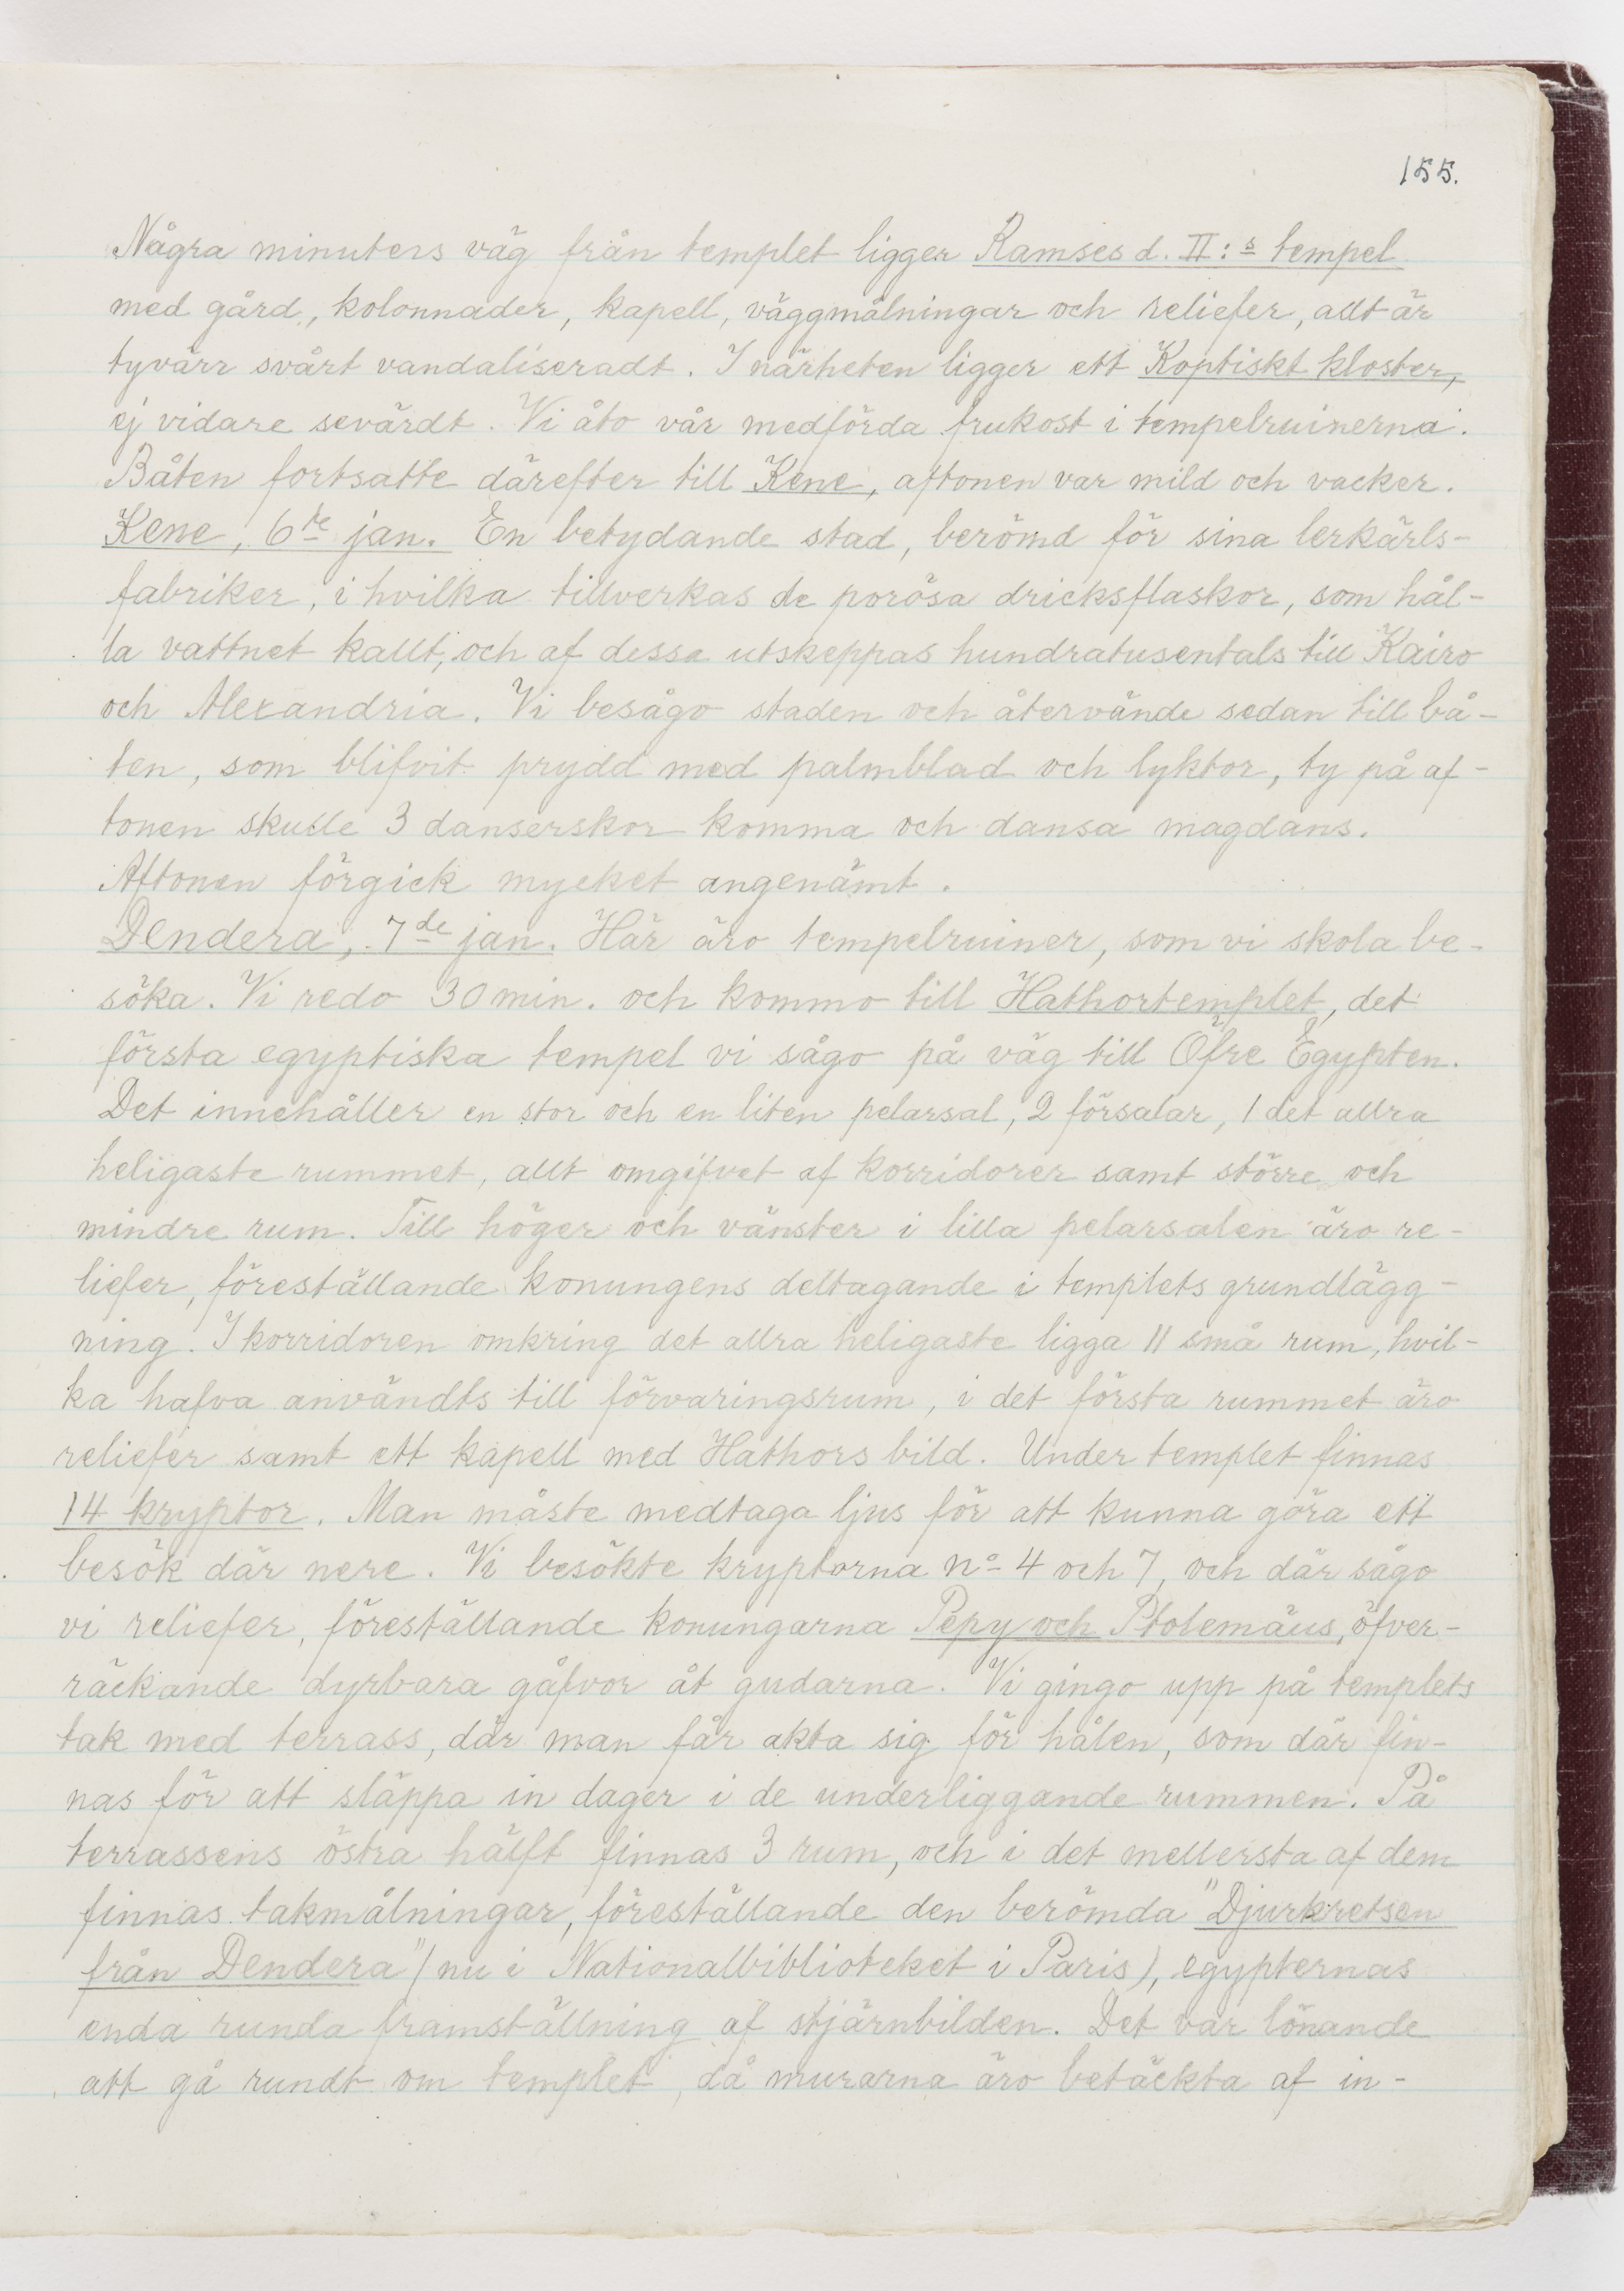 155.
Några minuters väg från templet ligger Ramses d. II:s tempel
med gård, kolonnader, kapell, väggmålningar och reliefer, allt är
tyvärr svårt vandaliseradt. I närheten ligger ett Koptiskt kloster,
ej vidare sevärdt. Vi åto vår medförda frukost i tempelruinerna.
Båten fortsatte därefter till Kene, aftonen var mild och vacker.
Kene, 6te jan. En betydande stad, berömd för sina lerkärls-
fabriker, i hvilka tillverkas de porösa dricksflaskor, som hål-
la vattnet kallt, och af dessa utskeppas hundratusentals till Kairo
och Alexandria. Vi besågo staden och återvände sedan till bå-
ten, som blifvit prydd med palmblad och lyktor, ty på af-
tonen skulle 3 danserskor komma och dansa magdans.
Aftonen förgick mycket angenämt.
Dendera, 7de jan. Här äro tempelruiner, som vi skola be-
söka. Vi redo 30 min. och kommo till Hathortemplet, det
första egyptiska tempel vi sågo på väg till Öfre Egypten.
Det innehåller en stor och en liten pelarsal, 2 försalar, 1 det allra
heligaste rummet, allt omgifvet af korridorer samt större och
mindre rum. Till höger och vänster i lilla pelarsalen äro re-
liefer, föreställande konungens deltagande i templets grundlägg-
ning. I korridoren omkring det allra heligaste ligga 11 små rum, hvil-
ka hafva användts till förvaringsrum, i det första rummet äro
reliefer samt ett kapell med Hathors bild. Under templet finnas
14 kryptor. Man måste medtaga ljus för att kunna göra ett
besök där nere. Vi besökte kryptorna No 4 och 7, och där sågo
vi reliefer, föreställande konungarna Pepy och Ptolemäus, öfver-
räckande dyrbara gåfvor åt gudarna. Vi gingo upp på templets
tak med terrass, där man får akta sig för hålen, som där fin-
nas för att släppa in dager i de underliggande rummen. På
terrassens östra hälft finnas 3 rum, och i det mellersta af dem
finnas takmålningar, föreställande den berömda "Djurkretsen
från Dendera" (nu i Nationalbiblioteket i Paris), egypternas
enda runda framställning af stjärnbilden. Det var lönande
att gå rundt om templet, då murarna äro betäckta af in-